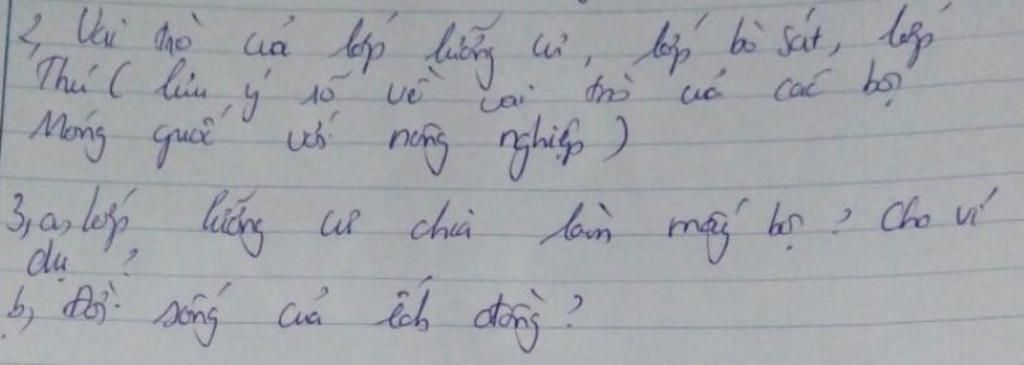 2, Vai trò của lớp lưỡng cư, lớp bò sát, lớp
Thú ( lưu ý rõ về vai trò của các bộ
Móng guốc với nông nghiệp )
3, a, lớp lưỡng cư chia làm mấy bộ? Cho ví
dụ?
b, Đời sống của ếch đồng?